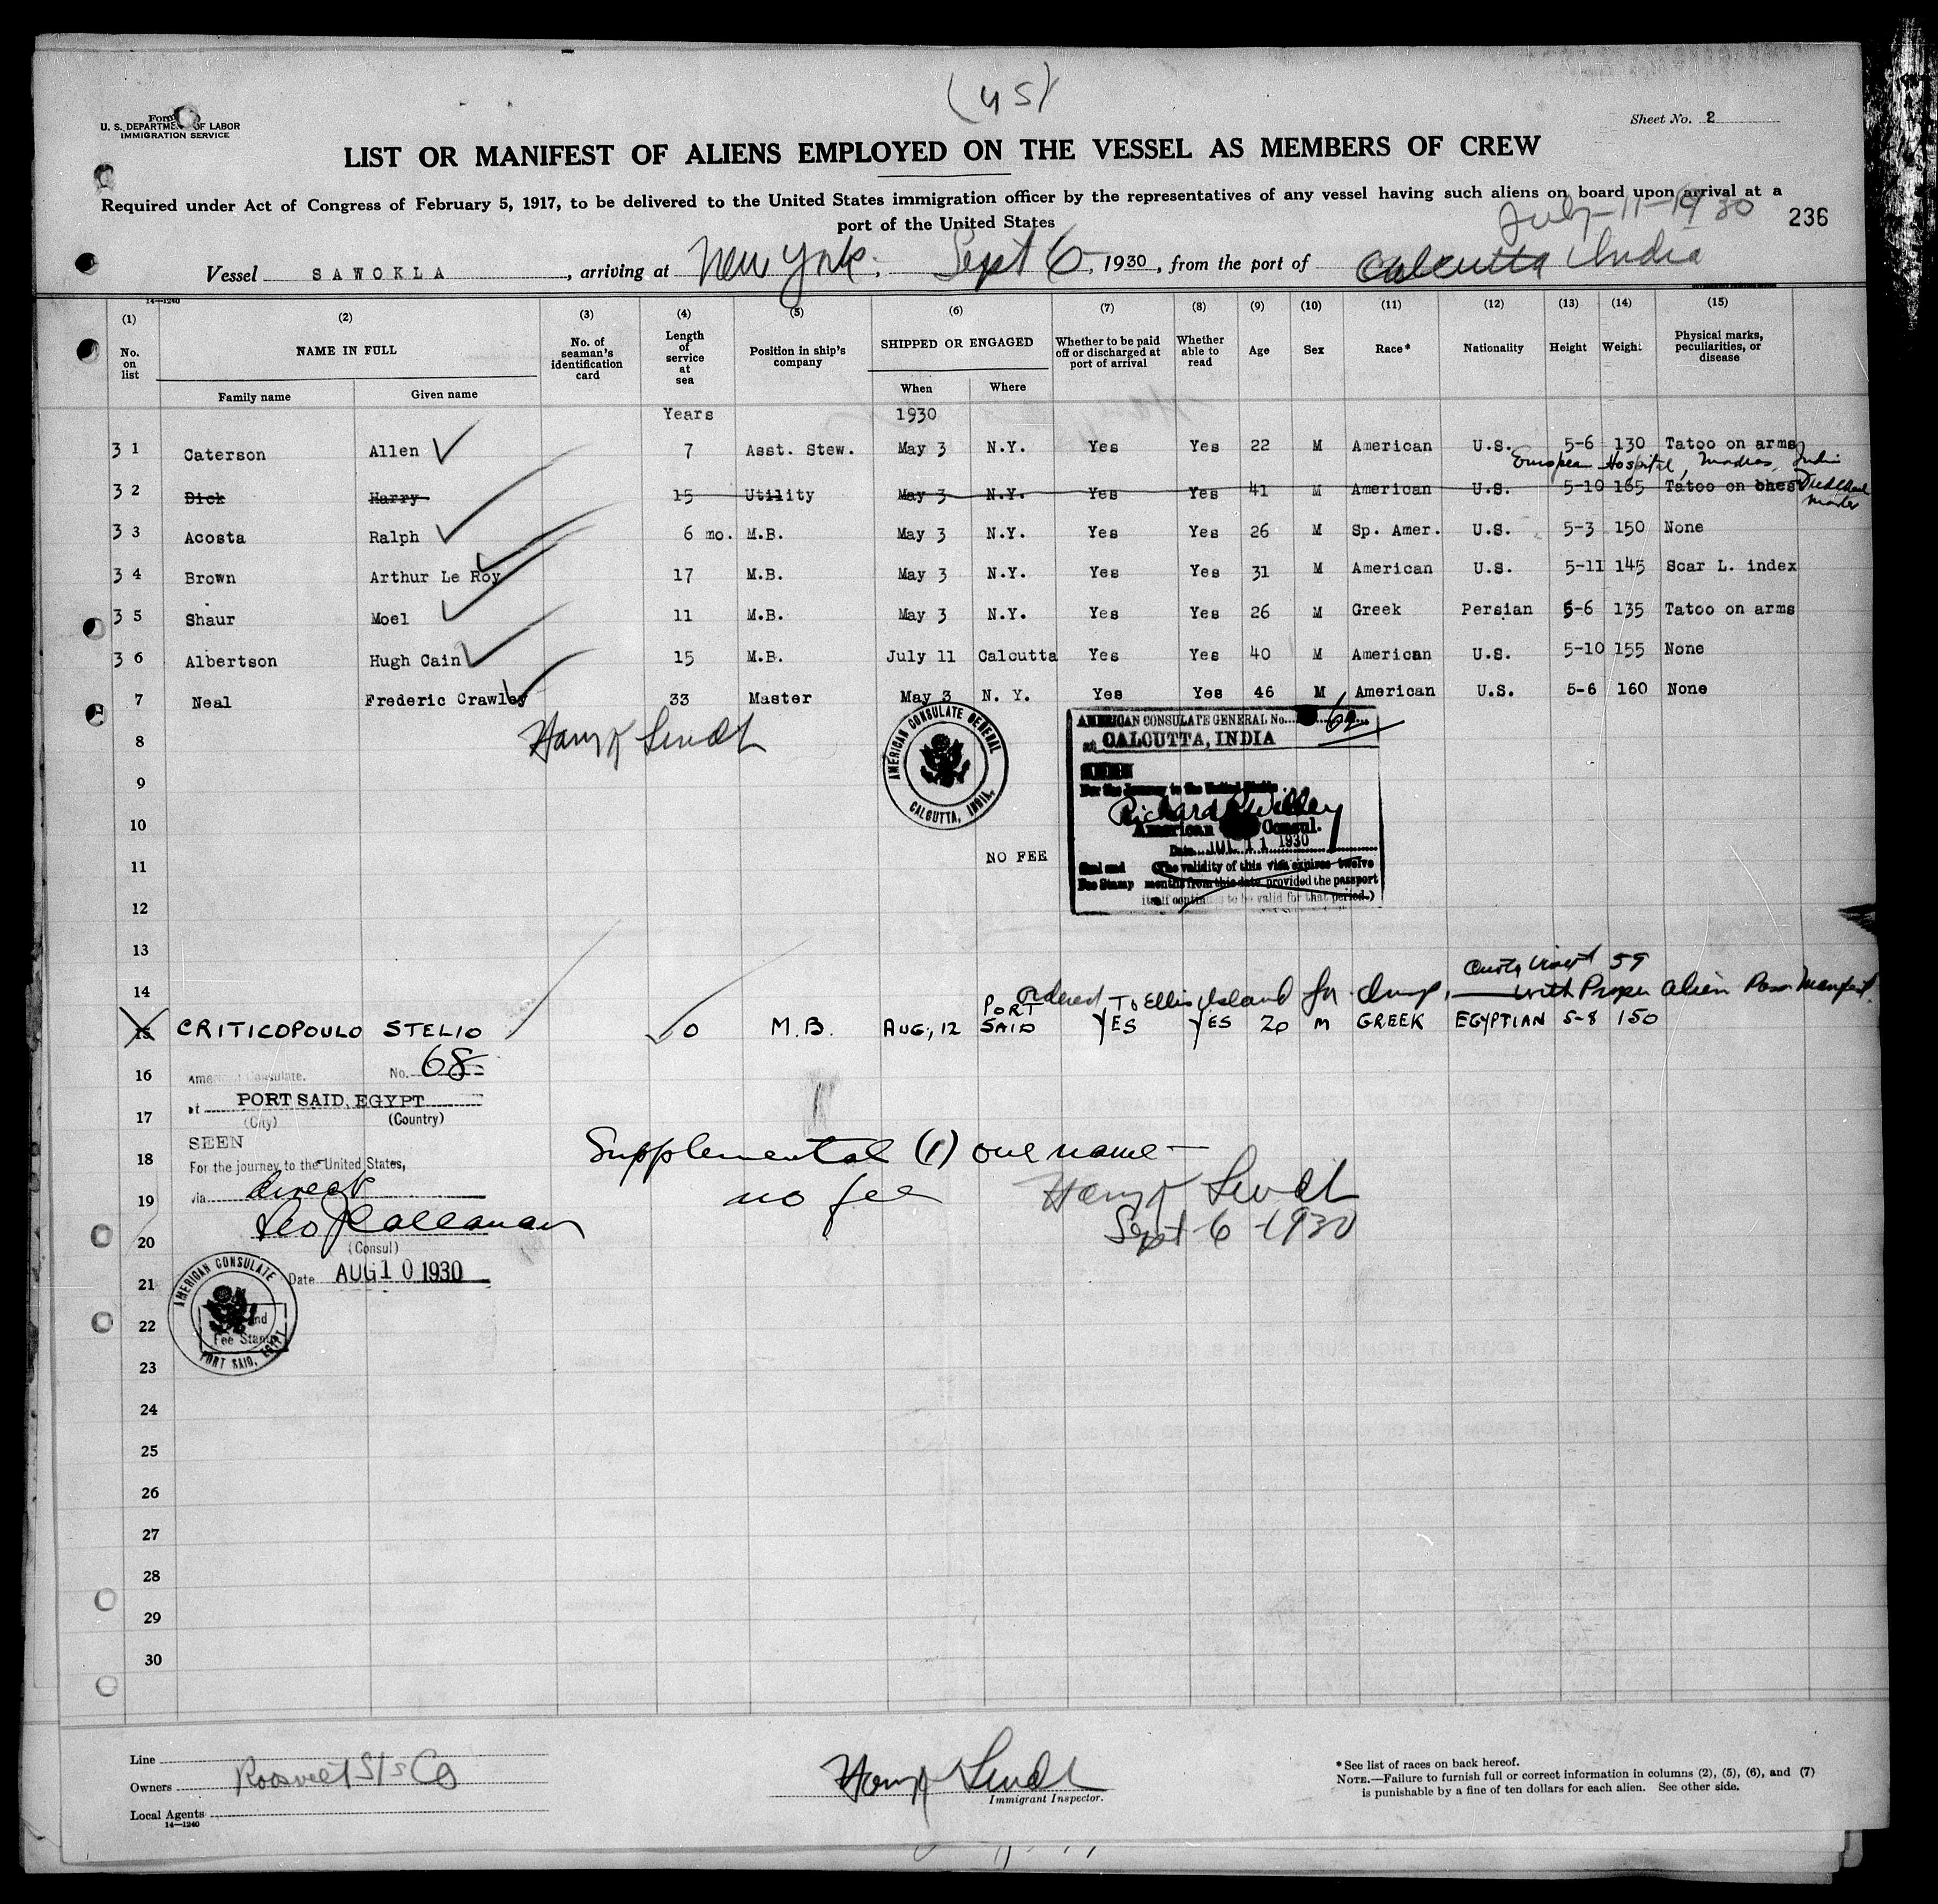 (45)
Form
U. S. DEPARTMENT OF LABOR
IMMIGRATION SERVICE
Sheet No. 2
LIST OR MANIFEST OF ALIENS EMPLOYED ON THE VESSEL AS MEMBERS OF CREW
Required under Act of Congress of February 5, 1917, to be delivered to the United States immigration officer by the representatives of any vessel having such aliens on board upon arrival at a
port of the United States
July-11-1930
236
Vessel SAWOKLA, arriving at New York, Sept 6, 1930, from the port of Calcutta India
14—1240
(1) (2) (3) (4) (5) (6) (7) (8) (9) (10) (11) (12) (13) (14) (15)
No. on list NAME IN FULL No. of seaman's identification card Length of service at sea Position in ship's company SHIPPED OR ENGAGED Whether to be paid off or discharged at port of arrival Whether able to read Age Sex Race* Nationality Height Weight Physical marks, peculiarities, or disease
Family name Given name When Where
Years 1930
31 Caterson Allen 7 Asst. Stew. May 3 N.Y. Yes Yes 22 M American U.S. 5-6 130 Tatoo on arms
European Hospital, Madras, India
32 Dick Harry 15 Utility May 3 N.Y. Yes Yes 41 M American U.S. 5-10 165 Tatoo on ches
Master
33 Acosta Ralph 6 mo. M.B. May 3 N.Y. Yes Yes 26 M Sp. Amer. U.S. 5-3 150 None
34 Brown Arthur Le Roy 17 M.B. May 3 N.Y. Yes Yes 31 M American U.S. 5-11 145 Scar L. index
35 Shaur Moel 11 M.B. May 3 N.Y. Yes Yes 26 M Greek Persian 5-6 135 Tatoo on arms
36 Albertson Hugh Cain 15 M.B. July 11 Calcutta Yes Yes 40 M American U.S. 5-10 155 None
7 Neal Frederic Crawley 33 Master May 3 N. Y. Yes Yes 46 M American U.S. 5-6 160 None
8
9
10
11
12
13
14
AMERICAN CONSULATE GENERAL
CALCUTTA, INDIA.
NO FEE
AMERICAN CONSULATE GENERAL No. 62
at CALCUTTA, INDIA
For the journey to the United States
Richard R Willey
American Consul.
Date JUL 11 1930
Seal and (The validity of this visa expires twelve
Fee Stamp months from this date provided the passport
itself continues to be valid for that period.)
59
Ordered To Ellis Island for with Proper Alien Manifest.
15 CRITICOPOULO STELIO 0 M.B. AUG, 12 PORT SAID YES YES 20 M GREEK EGYPTIAN 5-8 150
16 American Consulate. No. 68
17 at PORT SAID, EGYPT
(City) (Country)
SEEN
18 For the journey to the United States,
19 via direct
Leo J Callanan
20 (Consul)
21 Date AUG 10 1930
AMERICAN CONSULATE
PORT SAID, EGYPT
Fee Stamp
Supplemental (1) one name —
no fee
Sept 6-1930
22
23
24
25
26
27
28
29
30
Line
Owners Roosevelt S/S Co
Local Agents
14—1240
Immigrant Inspector.
* See list of races on back hereof.
NOTE.—Failure to furnish full or correct information in columns (2), (5), (6), and (7)
is punishable by a fine of ten dollars for each alien. See other side.